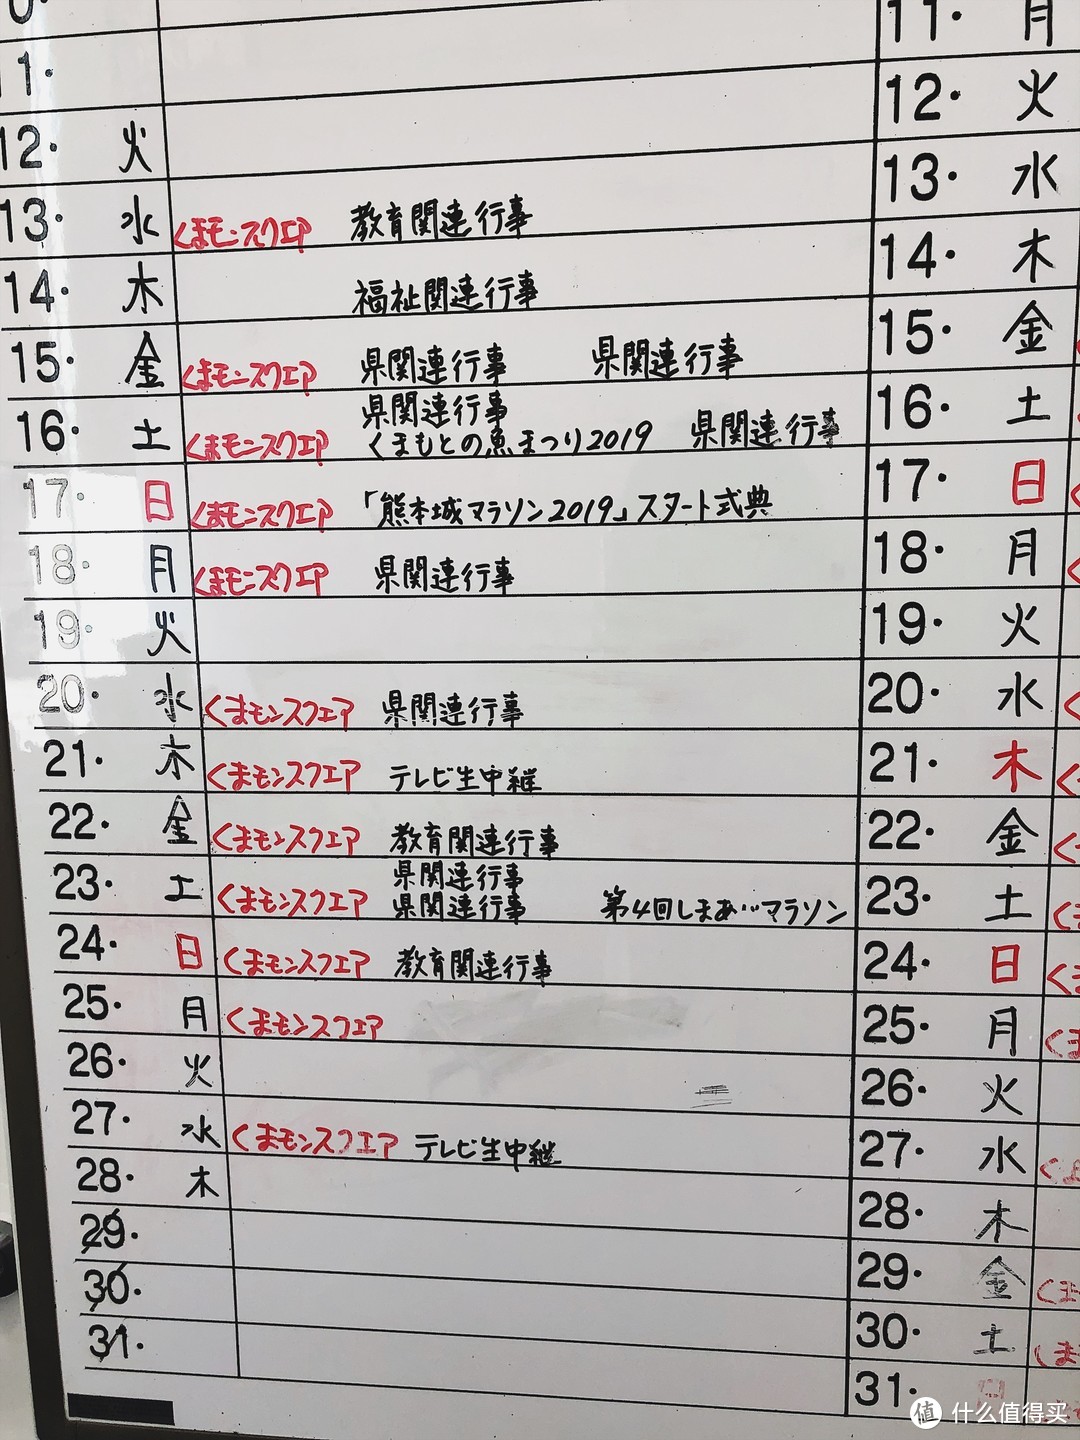 0.
11.
12. 火
13. 水 くまモンスクエア 教育関連行事
14. 木 福祉関連行事
15. 金 くまモンスクエア 県関連行事 県関連行事
16. 土 くまモンスクエア 県関連行事
くまもとの魚まつり2019 県関連行事
17. 日 くまモンスクエア 「熊本城マラソン2019」スタート式典
18. 月 くまモンスクエア 県関連行事
19. 火
20. 水 くまモンスクエア 県関連行事
21. 木 くまモンスクエア テレビ生中継
22. 金 くまモンスクエア 教育関連行事
23. 土 くまモンスクエア 県関連行事
県関連行事 第4回しまあ…マラソン
24. 日 くまモンスクエア 教育関連行事
25. 月 くまモンスクエア
26. 火
27. 水 くまモンスクエア テレビ生中継
28. 木
29.
30.
31.
11. 月
12. 火
13. 水
14. 木
15. 金
16. 土
17. 日 く
18. 月 く
19. 火
20. 水 く
21. 木 く
22. 金 く
23. 土 く
24. 日 く
25. 月 くま
26. 火
27. 水 く
28. 木
29. 金 くま
30. 土 くま
31. 日
值 什么值得买